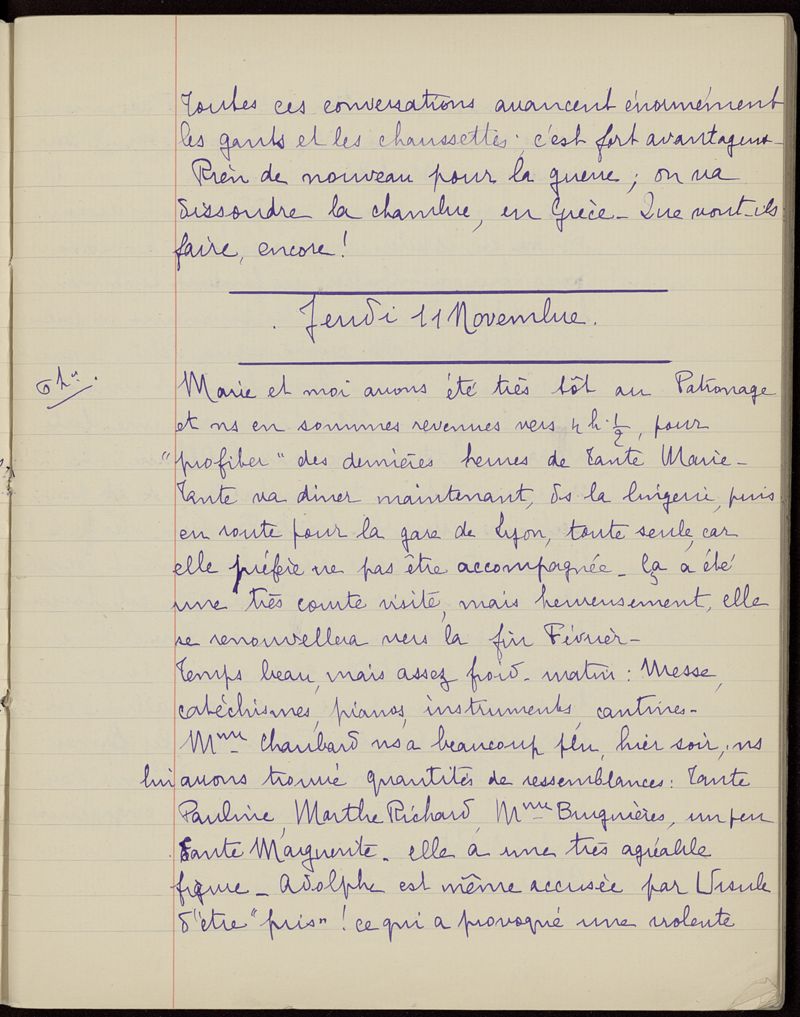 Toutes ces conversations avancent énormément
les gants et les chaussettes ; c'est fort avantageux -
Rien de nouveau pour la guerre ; on va
dissoudre la chambre, en Grèce - Que vont-ils
faire, encore !
. Jeudi 11 Novembre .
6 h rs .
Marie et moi avons été très tôt au Patronage
et ns en sommes revenues vers 4 h. 1/2, pour
"profiter" des dernières heures de Tante Marie -
Tante va dîner maintenant, ds la lingerie, puis
en route pour la gare de Lyon, toute seule, car
elle préfère ne pas être accompagnée - Ça a été
une très courte visite, mais heureusement, elle
se renouvellera vers la fin Février -
Temps beau, mais assez froid - matin : Messe,
catéchismes, pianos, instruments, cantines -
Mme Chaubard ns a beaucoup plu, hier soir, ns
lui avons trouvé quantités de ressemblances : Tante
Pauline, Marthe Richard, Mme Brugnières, un peu
Tante Marguerite - elle a une très agréable
figure - Adolphe est même accusée par Ursule
d'être "pris" ! ce qui a provoqué une violente